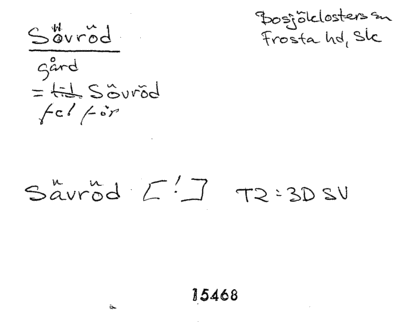 Sövröd
Bosjöklosters sn
Frosta hd, Sk
gård
= tid. Sövröd
fel för
Sävröd [!] T2=3D SV
15468